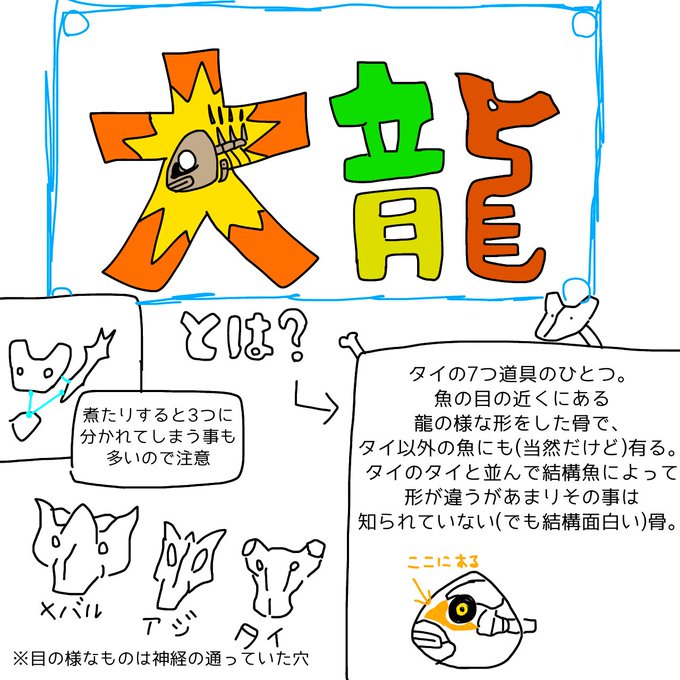 大龍
とは?
タイの7つ道具のひとつ。
魚の目の近くにある
龍の様な形をした骨で、
タイ以外の魚にも(当然だけど)有る。
タイのタイと並んで結構魚によって
形が違うがあまりその事は
知られていない(でも結構面白い)骨。
煮たりすると3つに
分かれてしまう事も
多いので注意
ここにある
メバル
アジ
タイ
※目の様なものは神経の通っていた穴